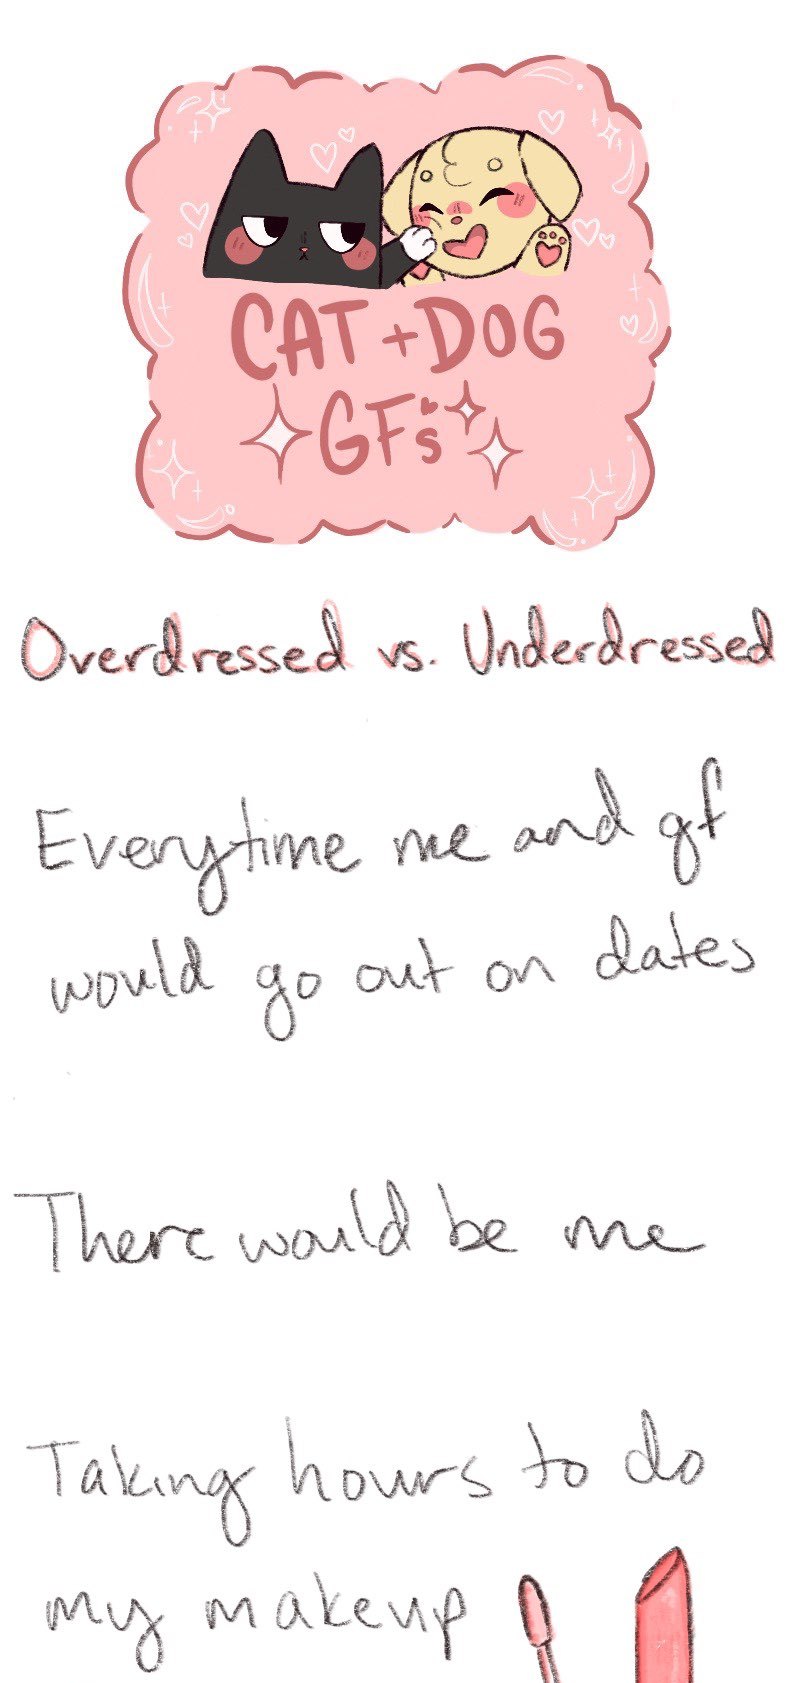 CAT + DOG
GFs
Overdressed vs. Underdressed
Everytime me and gf
would go out on dates
There would be me
Taking hours to do
my makeup